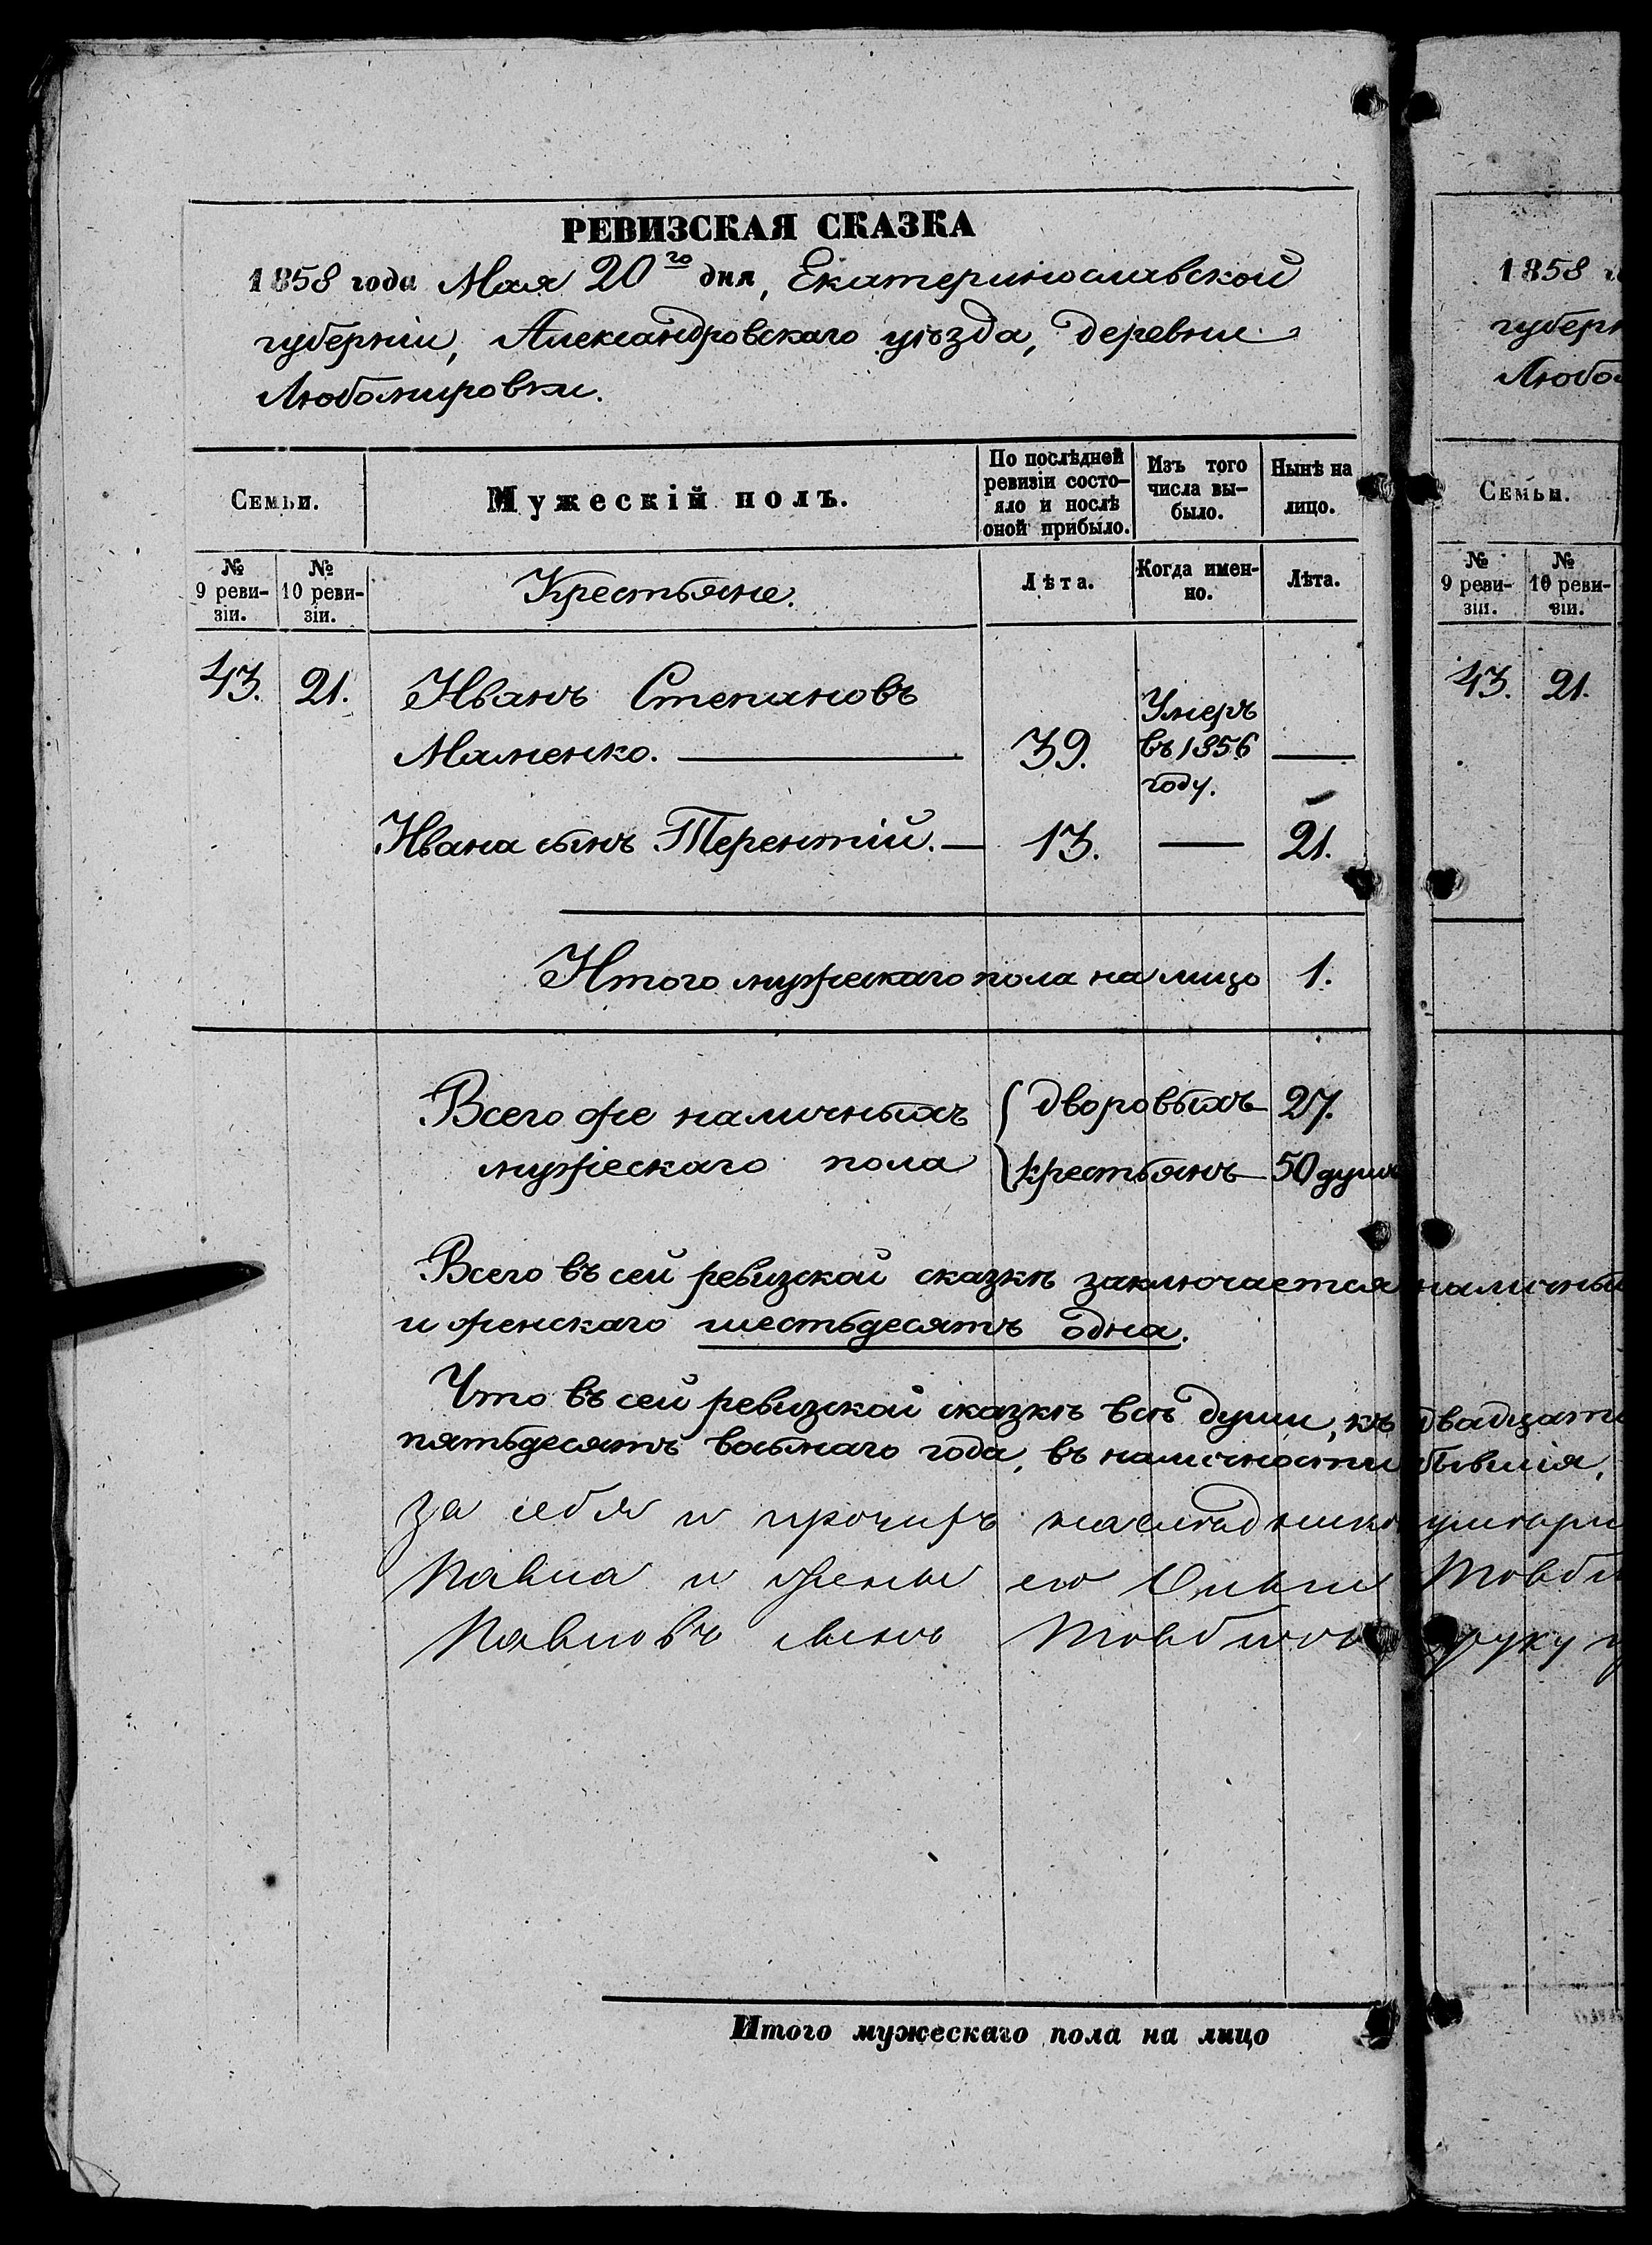 РЕВИЗСКАЯ СКАЗКА
1858 года Мая 20го дня, Екатеринославской
губерніи, Александровскаго уѣзда, деревни
Любомировки.
Семьи.
Мужескій полъ.
По послѣдней ревизіи состо-яло и послѣ оной прибыло.
Изъ того числа вы-было.
Нынѣ на лицо.
№ 9 реви-зіи.
№ 10 реви-зіи.
Крестьяне.
Лѣта.
Когда имен-но.
Лѣта.
43. 21. Иванъ Степановъ
Маменко. 39. Умеръ въ 1856 году.
Ивана сынъ Терентій. 13. 21.
Итого мужескаго пола на лицо 1.
Всего же наличныхъ дворовыхъ 27.
мужескаго пола крестьянъ 50 душъ
Всего въ сей ревизской сказкѣ заключается наличны
и женскаго шестьдесятъ одна.
Что въ сей ревизской сказкѣ всѣ души, къ двадцать
пятьдесятъ восьмаго года, въ наличности бывшія,
за себя и прочихъ
Павла и жены его
Павловъ сынъ руку
Итого мужескаго пола на лицо
1858 г
губерн
Любо
Семьи.
№ 9 реви-зіи.
№ 10 реви-зіи.
43. 21.